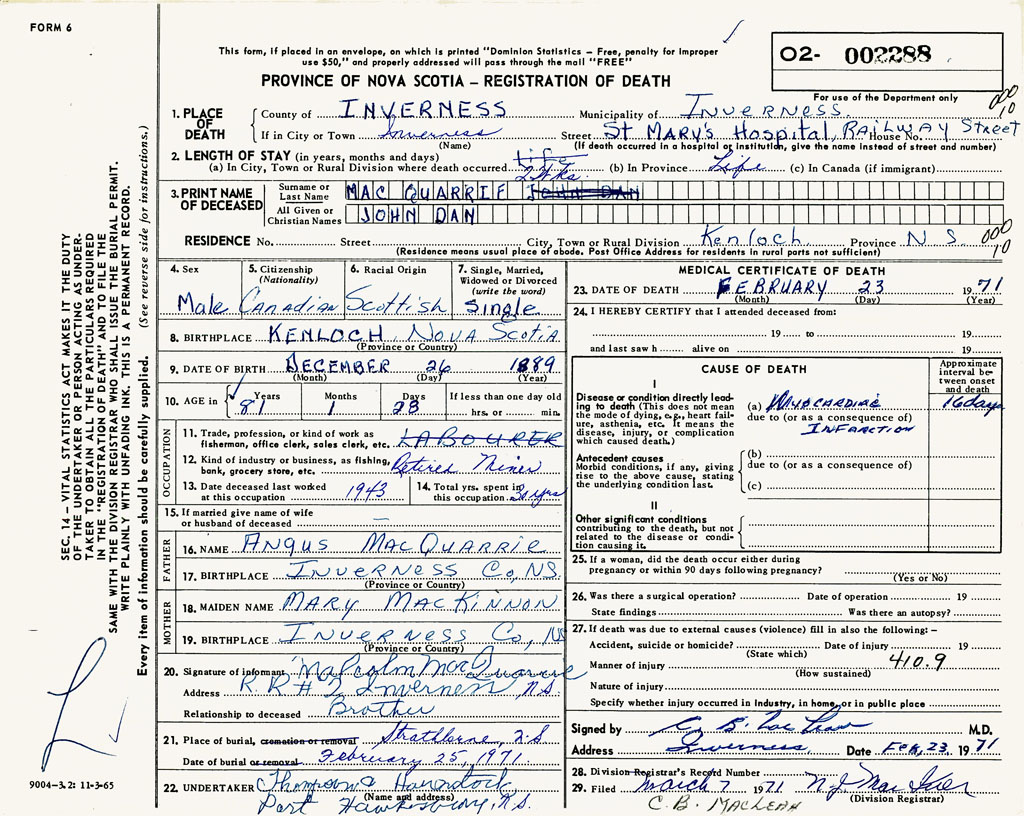 FORM 6
This form, if placed in an envelope, on which is printed "Dominion Statistics – Free, penalty for improper
use $50," and properly addressed will pass through the mail "FREE"
PROVINCE OF NOVA SCOTIA – REGISTRATION OF DEATH
02- 002288
For use of the Department only
000
10
1. PLACE OF DEATH
County of INVERNESS Municipality of INVERNESS
If in City or Town Inverness Street St MARY'S Hospital, RAILWAY Street House No.
(Name) (If death occurred in a hospital or institution, give the name instead of street and number)
2. LENGTH OF STAY (in years, months and days) Life
(a) In City, Town or Rural Division where death occurred 2 Wks. (b) In Province Life (c) In Canada (if immigrant)
3. PRINT NAME OF DECEASED
Surname or Last Name MAC QUARRIE JOHN DAN
All Given or Christian Names JOHN DAN
RESIDENCE No. Street City, Town or Rural Division Kenloch Province N S
000
10
(Residence means usual place of abode. Post Office Address for residents in rural parts not sufficient)
4. Sex Male
5. Citizenship (Nationality) Canadian
6. Racial Origin Scottish
7. Single, Married, Widowed or Divorced (write the word) Single
8. BIRTHPLACE KENLOCH NOVA SCOTIA
(Province or Country)
9. DATE OF BIRTH DECEMBER 26 1889
(Month) (Day) (Year)
10. AGE in Years 81 Months 1 Days 28 If less than one day old hrs. or min.
OCCUPATION
11. Trade, profession, or kind of work as fisherman, office clerk, sales clerk, etc. LABOURER
12. Kind of industry or business, as fishing, bank, grocery store, etc. Retired Miner
13. Date deceased last worked at this occupation 1943
14. Total yrs. spent in this occupation 30 yrs
15. If married give name of wife or husband of deceased —
FATHER
16. NAME ANGUS MACQUARRIE
17. BIRTHPLACE INVERNESS Co, NS
(Province or Country)
MOTHER
18. MAIDEN NAME MARY MACKINNON
19. BIRTHPLACE INVERNESS Co, NS
(Province or Country)
20. Signature of informant Malcolm MacQuarrie
Address R.R # 2 Inverness N.S.
Relationship to deceased Brother
21. Place of burial, cremation or removal Strathlorne, N.S
Date of burial or removal February 25, 1971
22. UNDERTAKER Thompson
(Name and address) Port Hawkesbury, N.S.
MEDICAL CERTIFICATE OF DEATH
23. DATE OF DEATH FEBRUARY 23 1971
(Month) (Day) (Year)
24. I HEREBY CERTIFY that I attended deceased from:
19 to 19
and last saw h alive on 19
CAUSE OF DEATH
Approximate interval between onset and death
I
Disease or condition directly leading to death (This does not mean the mode of dying, e.g., heart failure, asthenia, etc. It means the disease, injury, or complication which caused death.)
(a) MYOCARDIAL 16 days
due to (or as a consequence of)
INFARCTION
Antecedent causes
Morbid conditions, if any, giving rise to the above cause, stating the underlying condition last.
(b)
due to (or as a consequence of)
(c)
II
Other significant conditions
contributing to the death, but not related to the disease or condition causing it.
25. If a woman, did the death occur either during
pregnancy or within 90 days following pregnancy?
(Yes or No)
26. Was there a surgical operation? Date of operation 19
State findings Was there an autopsy?
27. If death was due to external causes (violence) fill in also the following: –
Accident, suicide or homicide? Date of injury 19
(State which)
Manner of injury 410.9
(How sustained)
Nature of injury
Specify whether injury occurred in Industry, in home, or in public place
Signed by M.D.
Address Inverness Date Feb, 23, 1971
28. Division Registrar's Record Number
29. Filed March 7 1971
(Division Registrar)
C.B. MACLEAN
SEC. 14 – VITAL STATISTICS ACT MAKES IT THE DUTY
OF THE UNDERTAKER OR PERSON ACTING AS UNDER-
TAKER TO OBTAIN ALL THE PARTICULARS REQUIRED
IN THE "REGISTRATION OF DEATH" AND TO FILE THE
SAME WITH THE DIVISION REGISTRAR WHO SHALL ISSUE THE BURIAL PERMIT.
WRITE PLAINLY WITH UNFADING INK. THIS IS A PERMANENT RECORD.
Every item of information should be carefully supplied. (See reverse side for instructions.)
9004–3.2: 11-3-65